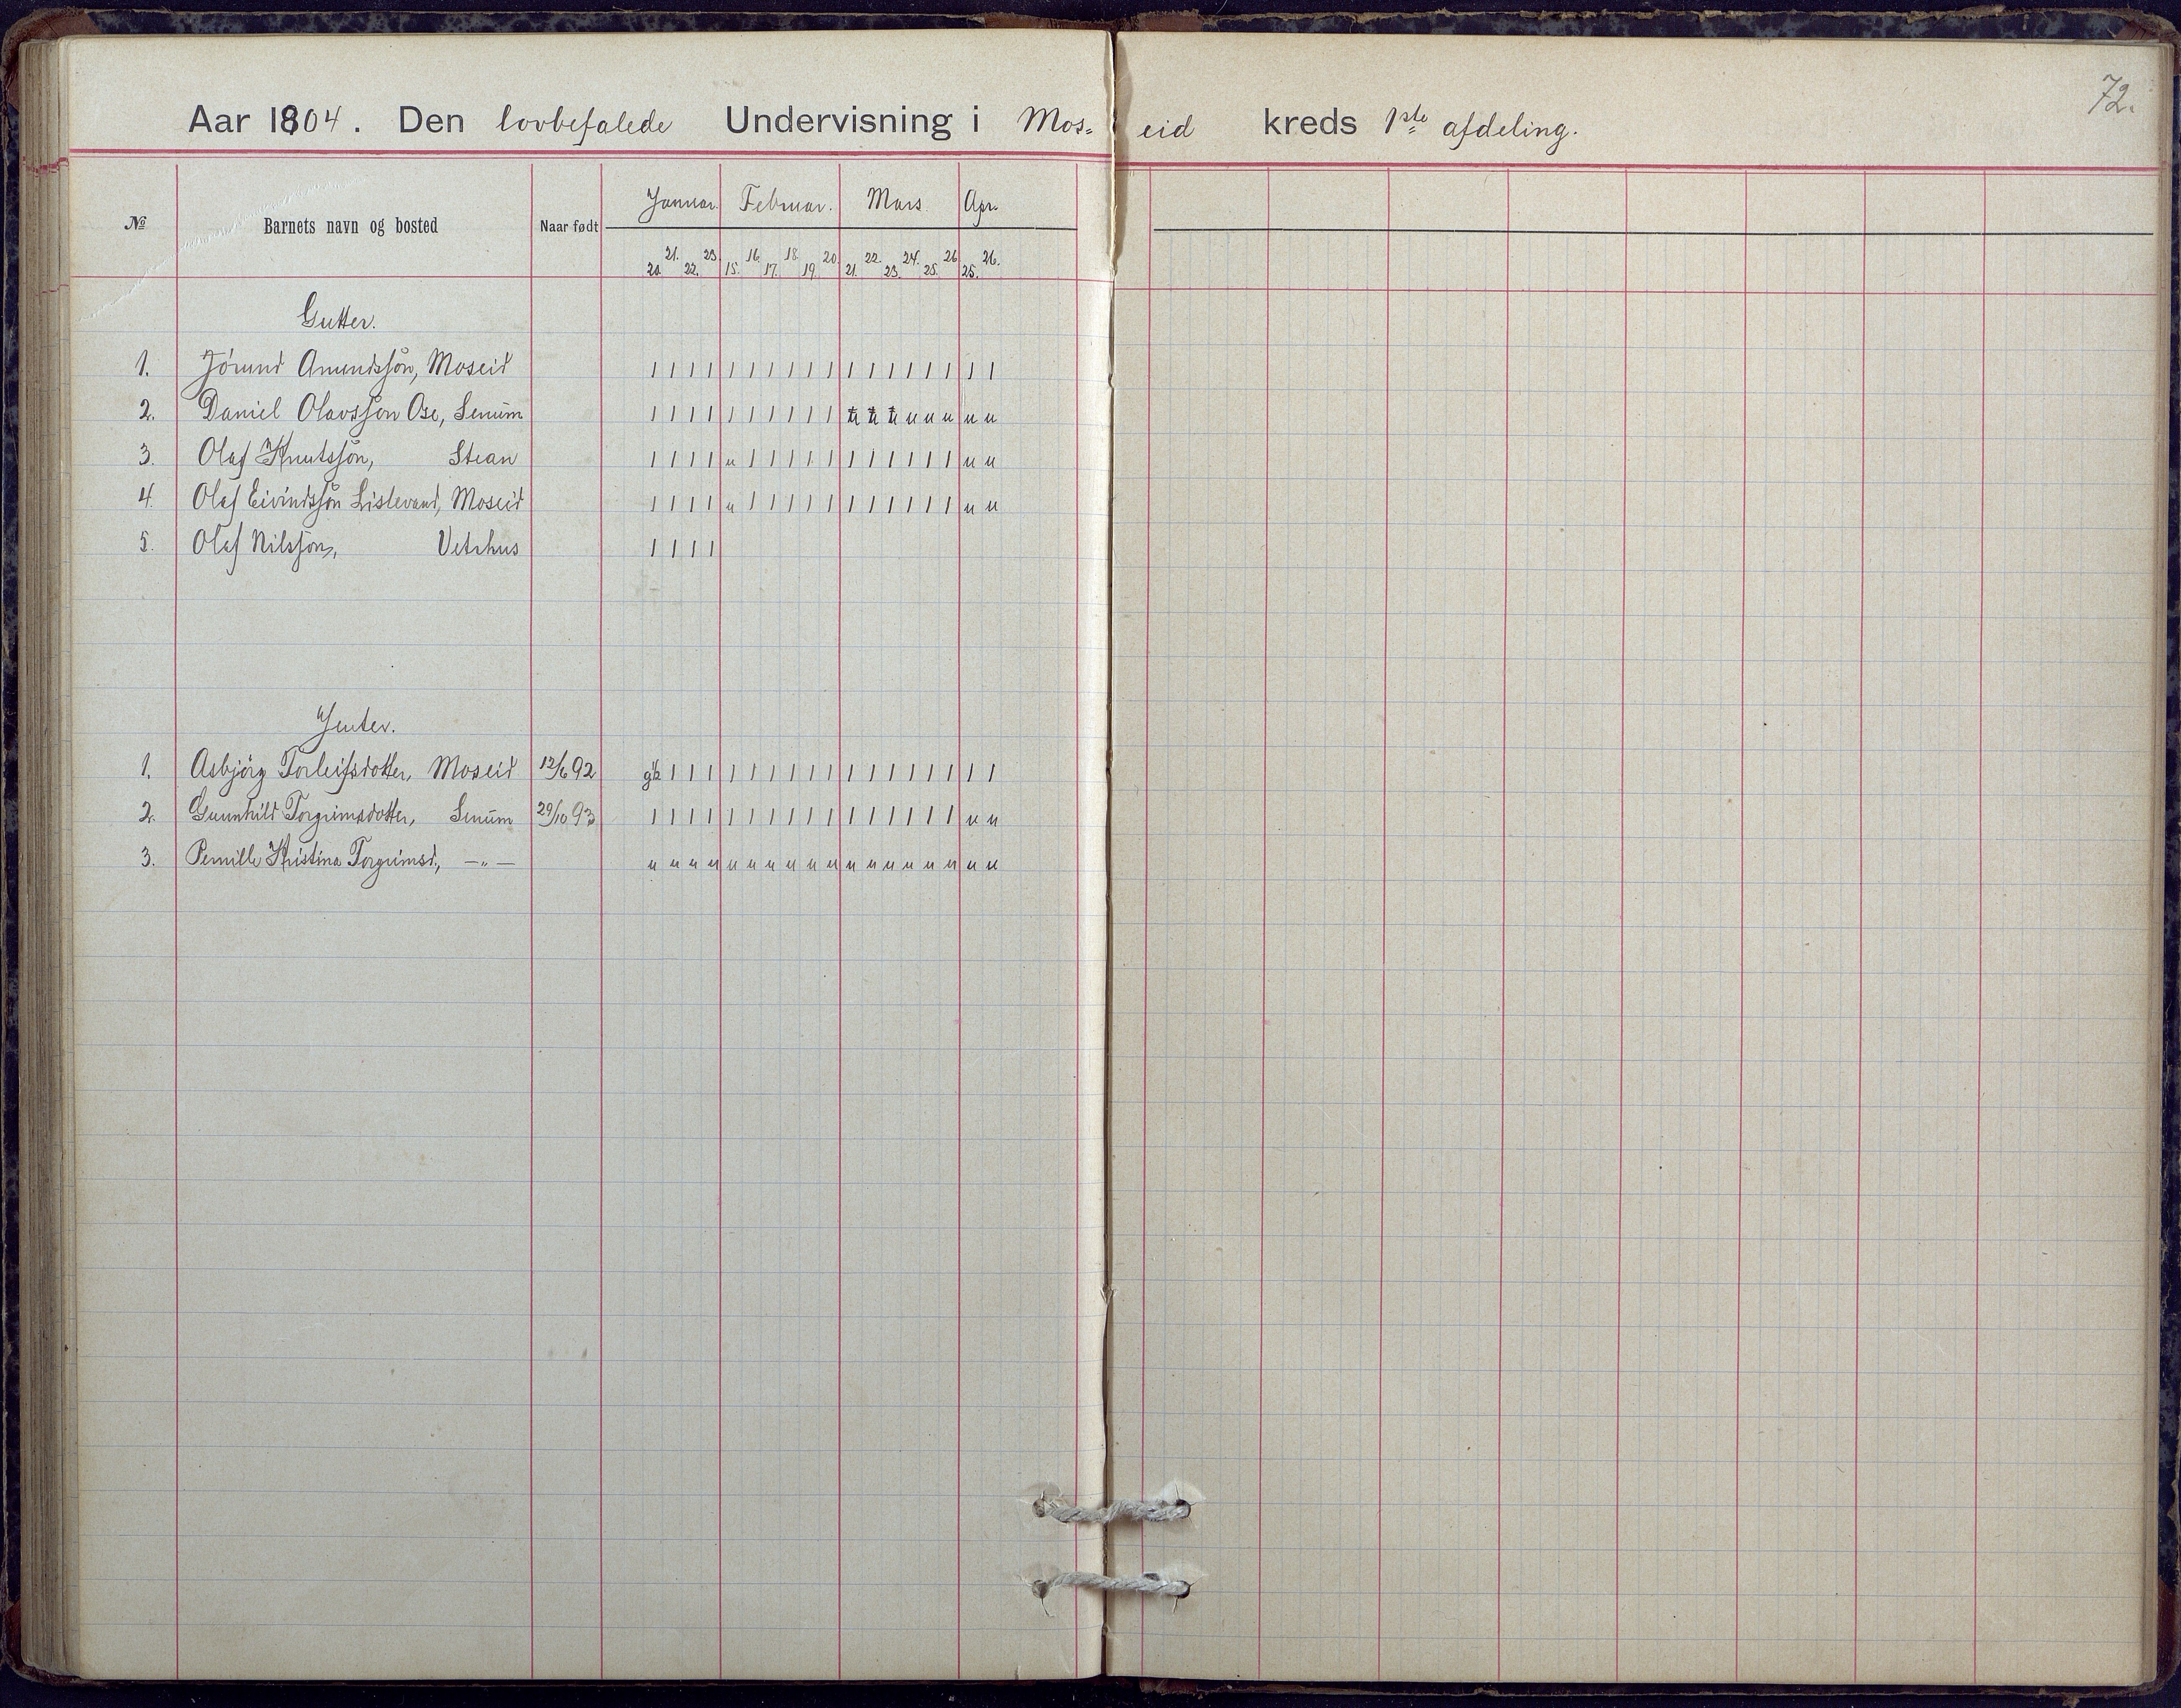 72.
Aar 1804. Den lovbefalede Undervisning i Mos= eid kreds 1ste afdeling.
№ Barnets navn og bosted Naar født Januar. Februar. Mars. Apr.
20. 21. 22. 23. 15. 16. 17. 18. 19. 20. 21. 22. 23. 24. 25. 26. 25. 26.
Gutter.
1. Jörund Amundssön, Moseid 1 1 1 1 1 1 1 1 1 1 1 1 1 1 1 1 1 1
2. Daniel Olavssön Ose, Senum 1 1 1 1 1 1 1 1 1 1 u u u u u u u
3. Olaf Knutssön, Stean 1 1 1 1 u 1 1 1 1 1 1 1 1 1 1 1 u u
4. Olaf Eivindssön Lislevand, Moseid 1 1 1 1 u 1 1 1 1 1 1 1 1 1 1 1 u u
5. Olaf Nilssön, Vetrhus 1 1 1 1
Jenter.
1. Asbjörg Torleifsdotter, Moseid 12/6 92 1 1 1 1 1 1 1 1 1 1 1 1 1 1 1 1 1
2. Gunnhild Torgrimsdotter, Senum 29/10 93 1 1 1 1 1 1 1 1 1 1 1 1 1 1 1 1 u u
3. Pernille Kristina Torgrimsd., —„— u u u u u u u u u u u u u u u u u u